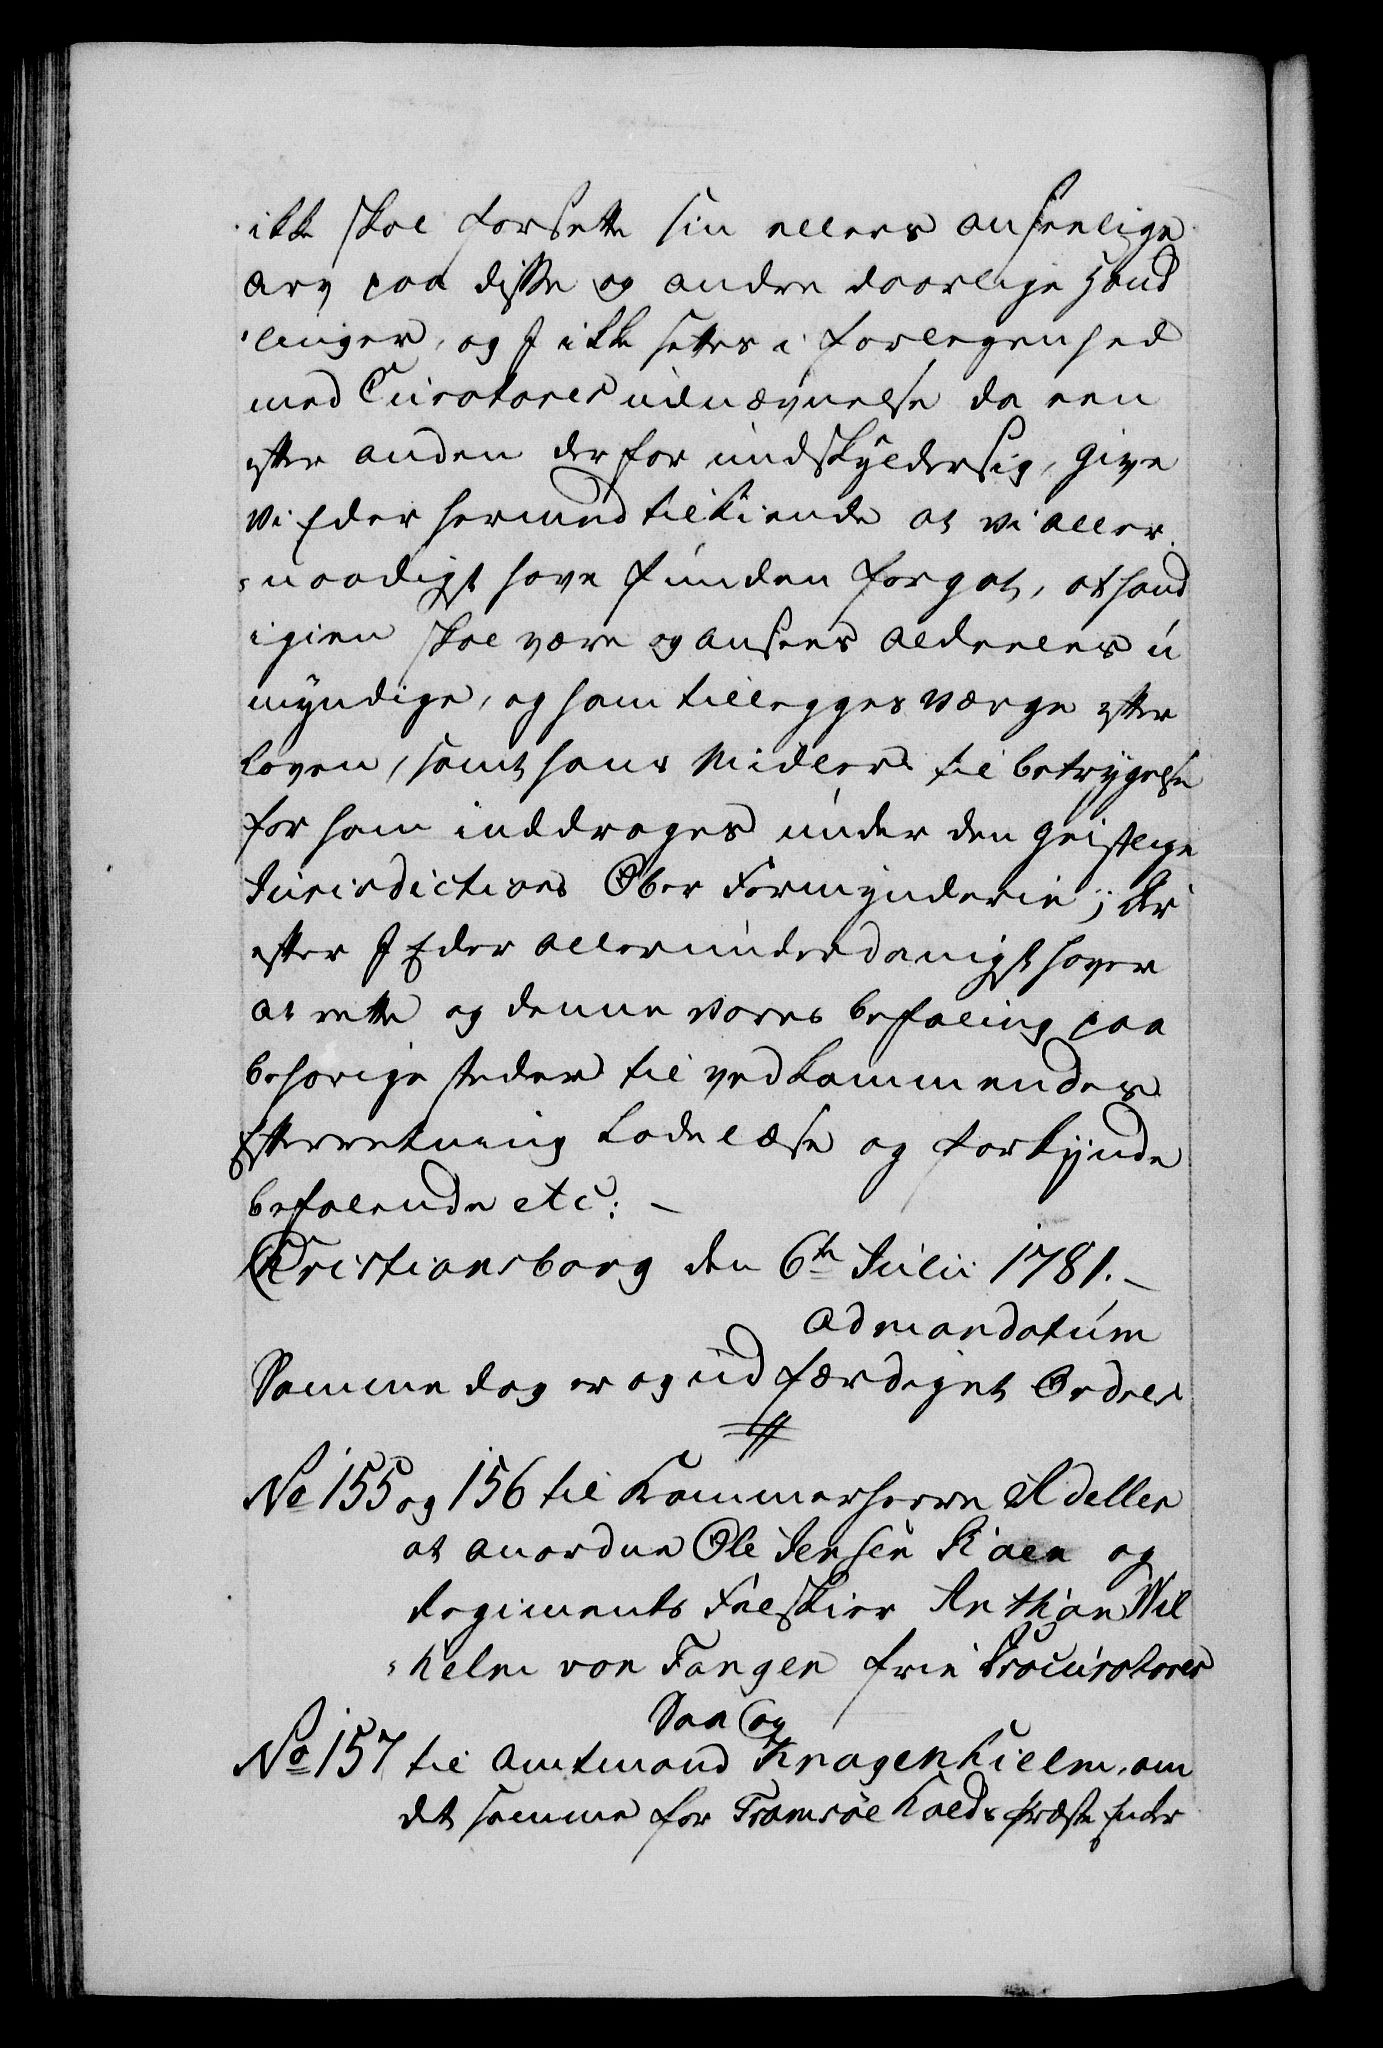 ikke skal forsette sin ellers anseelige
arv paa disse og andre daarlige Hand
linger, og I ikke settes i forlegenhed
med Curatores udnævnelse da een
efter anden derfor undskylder sig, Give
Vi Eder hermed tilkiende at vi aller
naadigst have funden for got, at hand
igien skal være og ansees aldeeles u
myndige, og ham tillegges Værge efter
Loven, samt hans Midler til betrygelse
for ham inddrages under den geistlige
Jurisdictions Ober Formynderie; Der
efter I Eder allerunderdanigst haver
at rette og denne Vores befaling paa
behørige steder til vedkommendes
Efterretning lade læse og forkynde
befalende etc: -
Christiansborg den 6te Julii 1781. -
ad mandatum
Samme dag er og udfærdiget Ordres
No 155 og 156 til Kammerherre Adeller
at anordne Ole Jensen Kaen og
Regiments Feldskier Anthon Wil
helm von Fangen frie Procuratores
Saa og
No 157 til Amtmand Kragenhielm, om
det samme for Tromsøe Kalds præste Enker